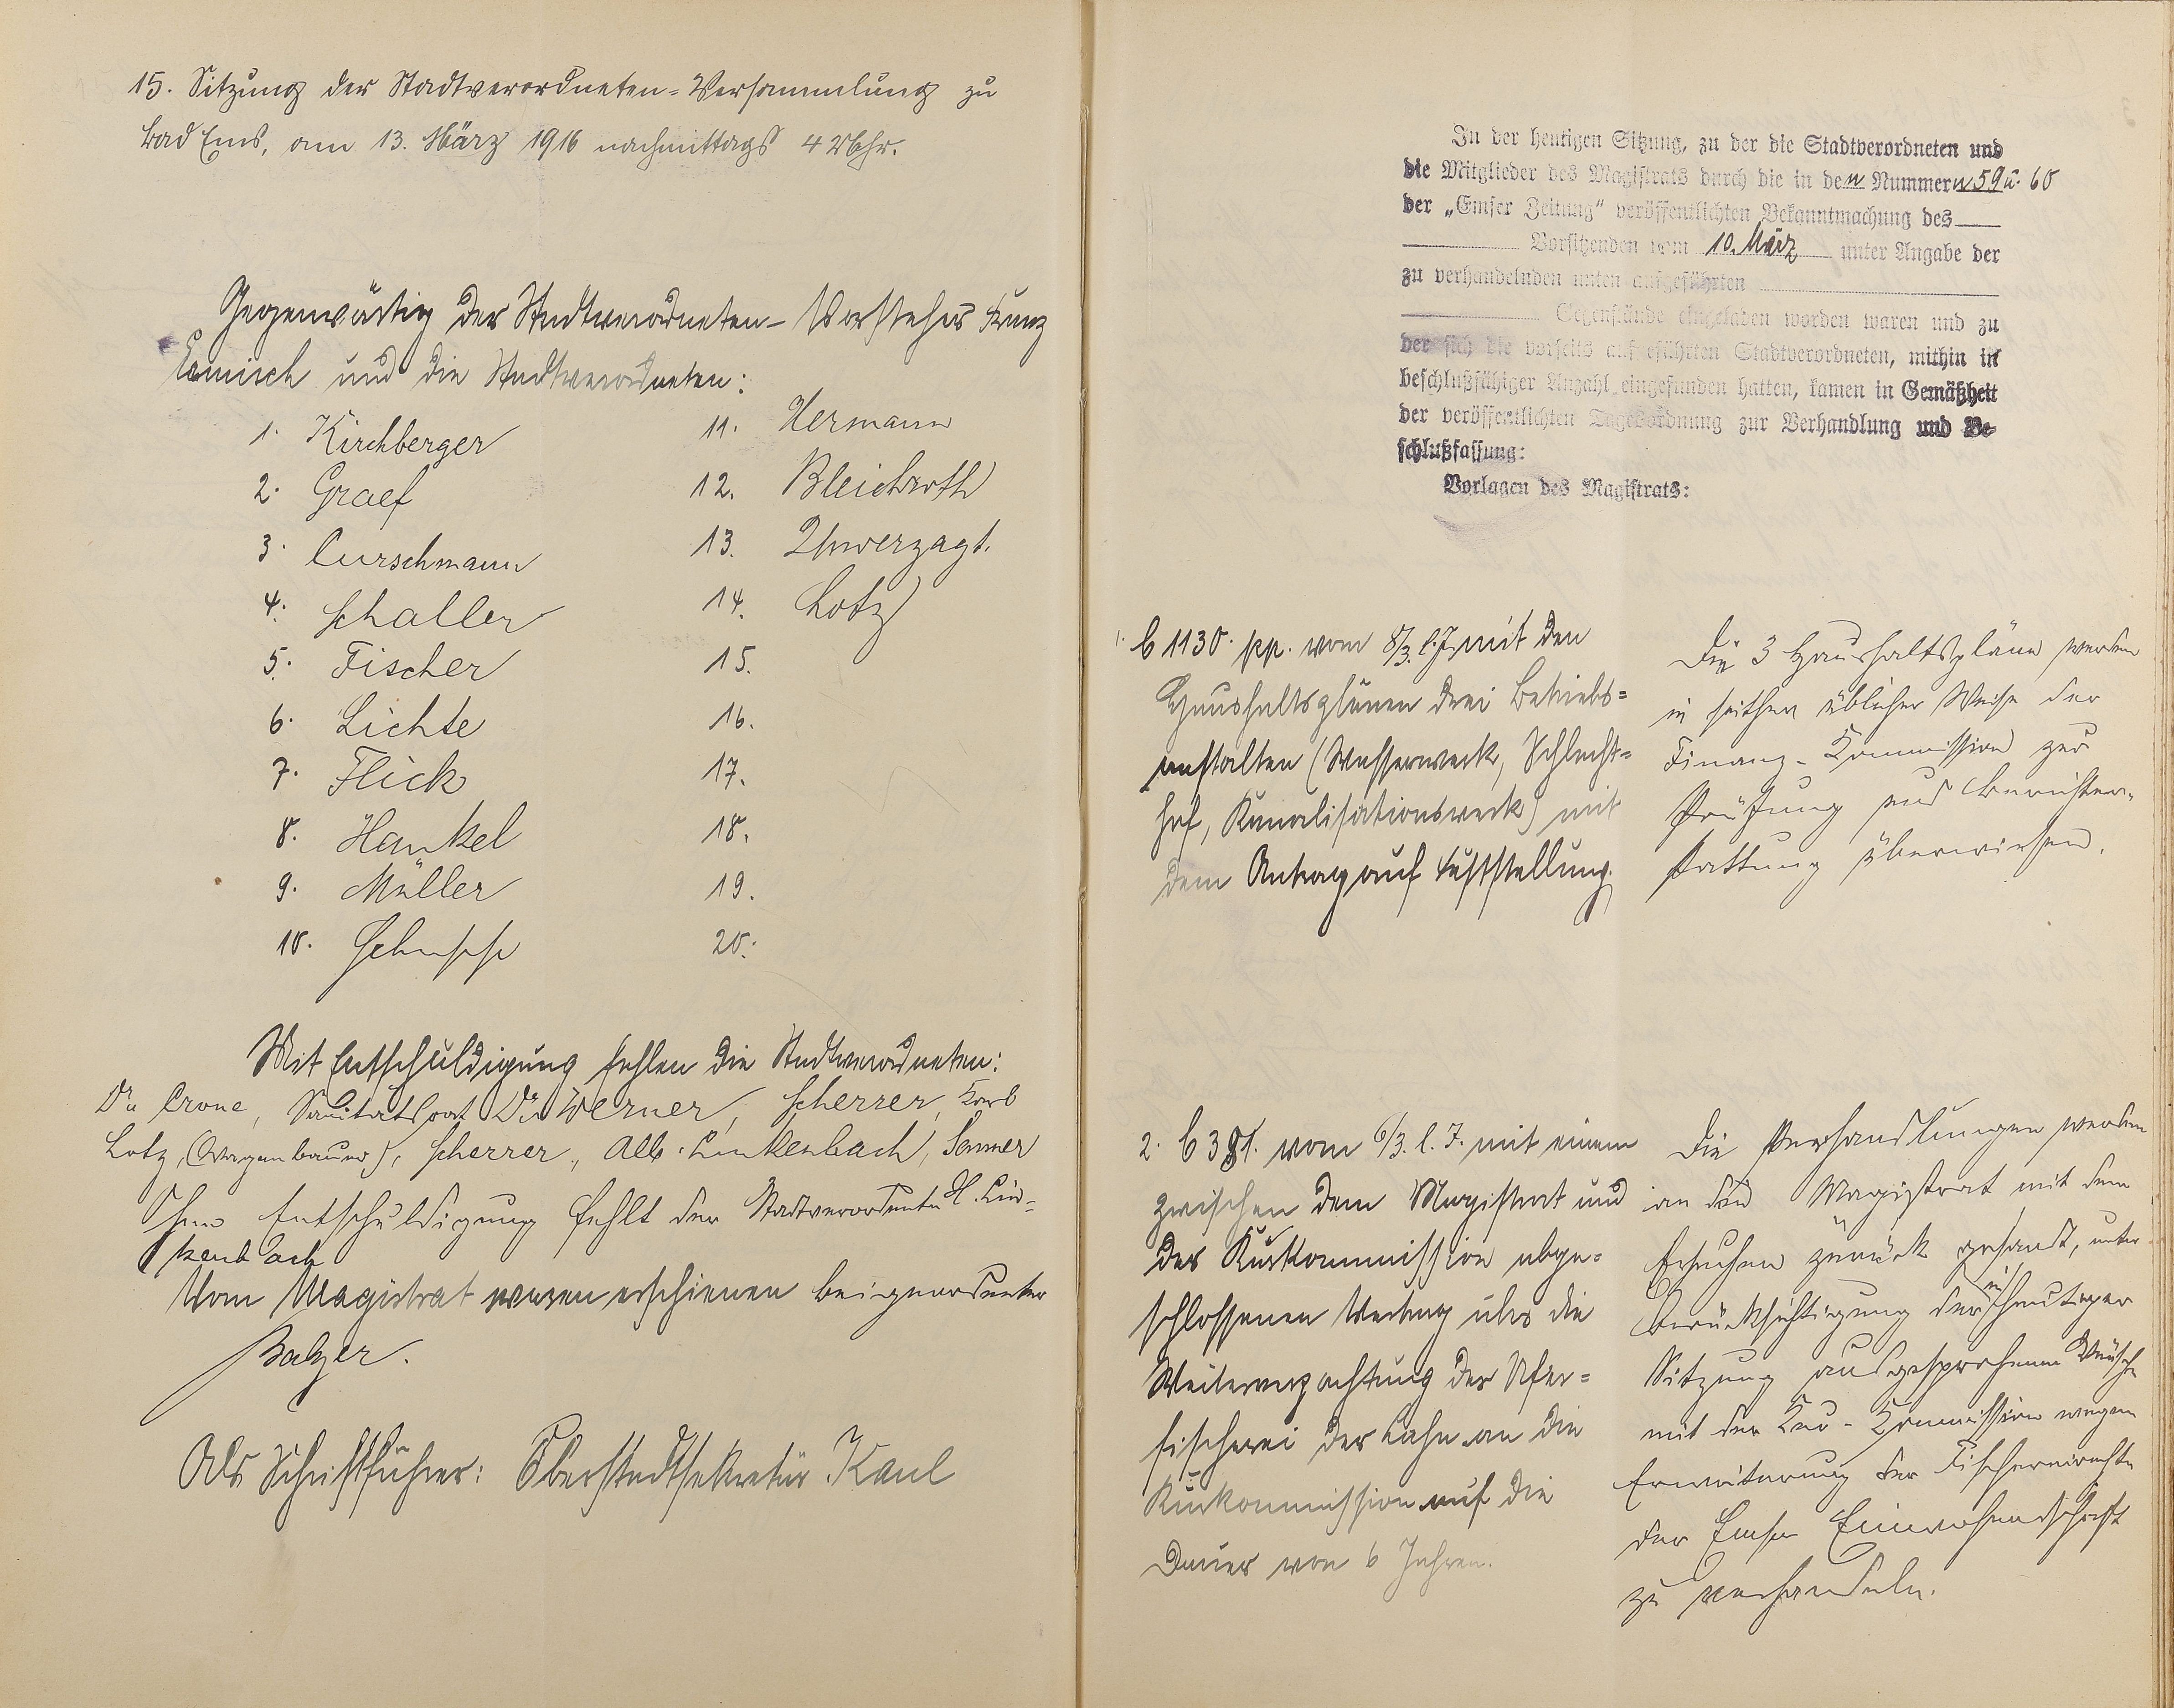 15. Sitzung der Stadtverordneten-Versammlung zu
Bad Ems, am 13. März 1916 nachmittags 4 Uhr.
Gegenwärtig der Stadtverordneten-Vorsteher Franz
Ermisch und die Stadtverordneten:
1. Kirchberger
2. Graef
3. Curschmann
4. Schaller
5. Fischer
6. Lichte
7. Flick
8. Hankel
9. Müller
10. Schupp
11. Hermann
12. Bleichroth
13. Unverzagt.
14. Lotz
15.
16.
17.
18.
19.
20.
Mit Entschuldigung fehlen die Stadtverordneten:
Dr. Crone, Sanitätsrat Dr. Werner, Scherrer, Karl
Lotz, (Wagenbauer), Scherrer, Alb. Linkenbach, Sommer
Ohne Entschuldigung fehlt der Stadtverordnete H. Lin-
kenbach
Vom Magistrat waren erschienen Beigeordneter
Balzer.
Als Schriftführer: Oberstadtsekretär Kaul
In der heutigen Sitzung, zu der die Stadtverordneten und
die Mitglieder des Magistrats durch die in den Nummern 59 u. 60
der „Emser Zeitung“ veröffentlichten Bekanntmachung des
Vorsitzenden vom 10. März unter Angabe der
zu verhandelnden unten aufgeführten
Gegenstände eingeladen worden waren und zu
der sich die vorseits aufgeführten Stadtverordneten, mithin in
beschlußfähiger Anzahl eingefunden hatten, kamen in Gemäßheit
der veröffentlichten Tagesordnung zur Verhandlung und Be-
schlußfassung:
Vorlagen des Magistrats:
1. b 1130. pp. vom 8/3. l. J. mit den
Haushaltsplänen drei Betriebs-
anstalten (Wasserwerk, Schlacht-
hof, Kanalisationswerk) mit
dem Antrag auf Feststellung.
Die 3 Haushaltspläne werden
in seither üblicher Weise der
Finanz-Kommission zur
Prüfung und Berichter-
stattung überwiesen.
2. b 381. vom 6/3. l. J. mit einem
zwischen dem Magistrat und
der Kurkommission abge-
schlossenen Vertrag über die
Weiterverpachtung der Ufer-
fischerei der Lahn an die
Kurkommission auf die
Dauer von 6 Jahren.
Die Verhandlungen werden
an den Magistrat mit dem
Ersuchen zurück gesandt, unter
Berücksichtigung der in heutiger
Sitzung ausgesprochenen Wünsche
mit der Kur-Kommission wegen
Erweiterung der Fischereirechte
der Emser Einwohnerschaft
zu verhandeln.